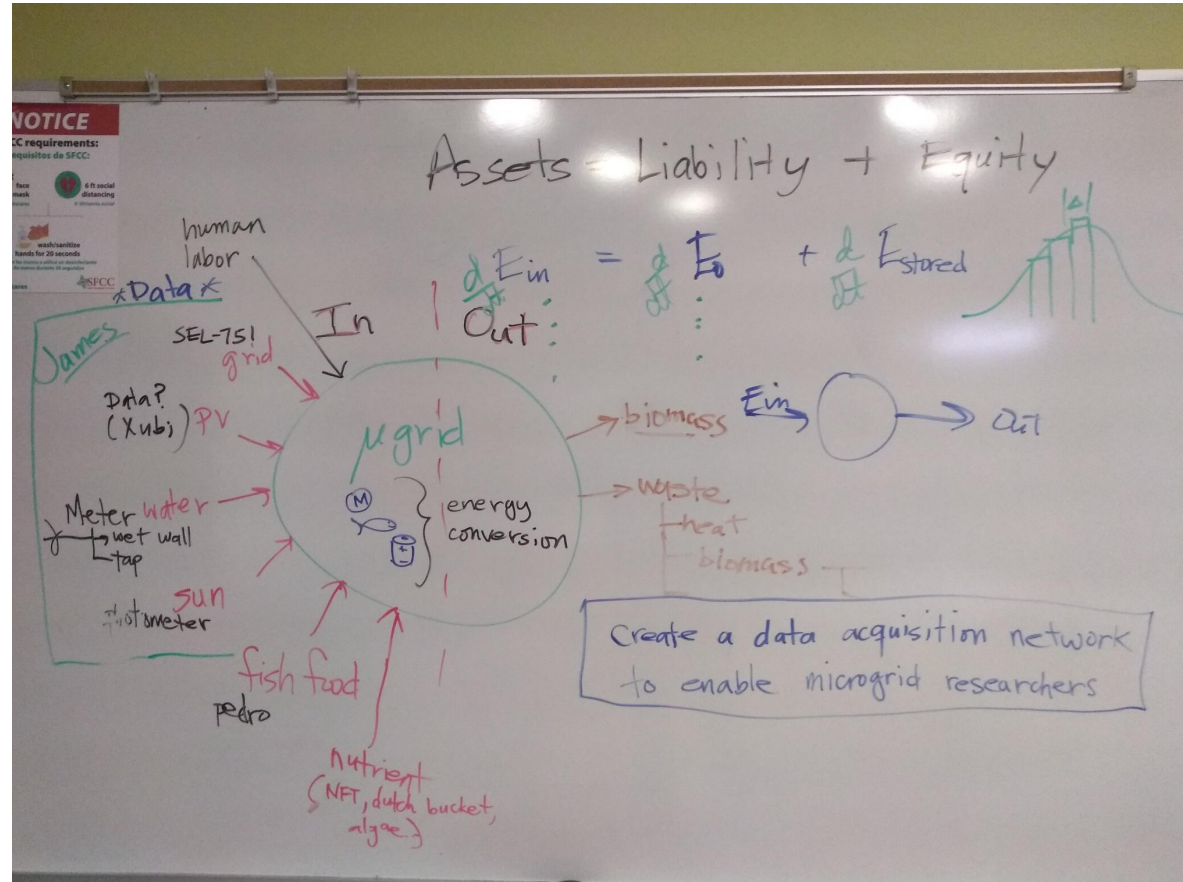 NOTICE
CC requirements:
equisitos de SFCC:
face
mask
6 ft social
distancing
wash/sanitize
hands for 20 seconds
SFCC
Assets = Liability + Equity
d/dt Ein = d/dt Eo + d/dt Estored
|Δ|
human
labor
*Data*
James
In
Out
SEL-751
grid
Data?
(Xubi) PV
Meter water
wet wall
tap
sun
fish food
pedro
nutrient
(NFT, dutch bucket,
algae)
µgrid
M
energy
conversion
biomass
waste
heat
biomass
Ein
Out
Create a data acquisition network
to enable microgrid researchers